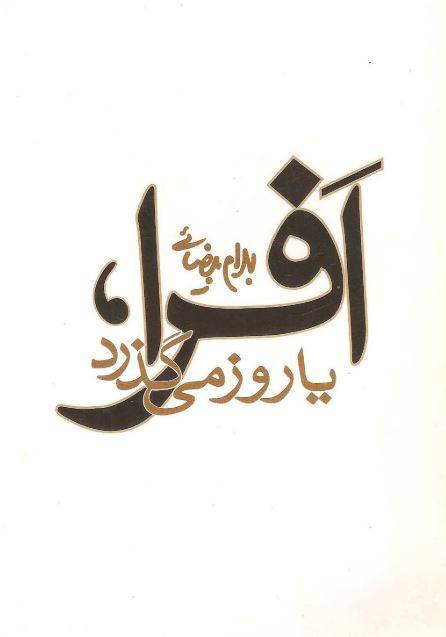 اَفرا،
بهرام بیضائی
یا روز می‌گذرد